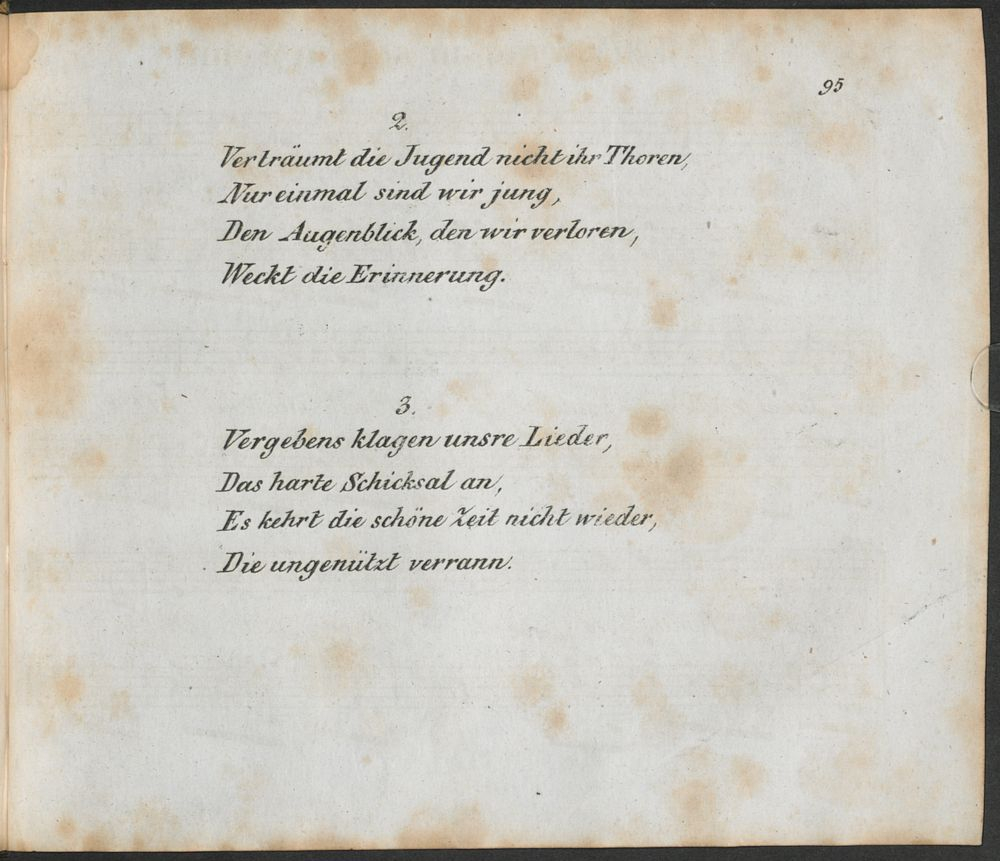 95
2.
Verträumt die Jugend nicht ihr Thoren,
Nur einmal sind wir jung,
Den Augenblick, den wir verloren,
Weckt die Erinnerung.
3.
Vergebens klagen unsre Lieder,
Das harte Schicksal an,
Es kehrt die schöne Zeit nicht wieder,
Die ungenützt verrann.